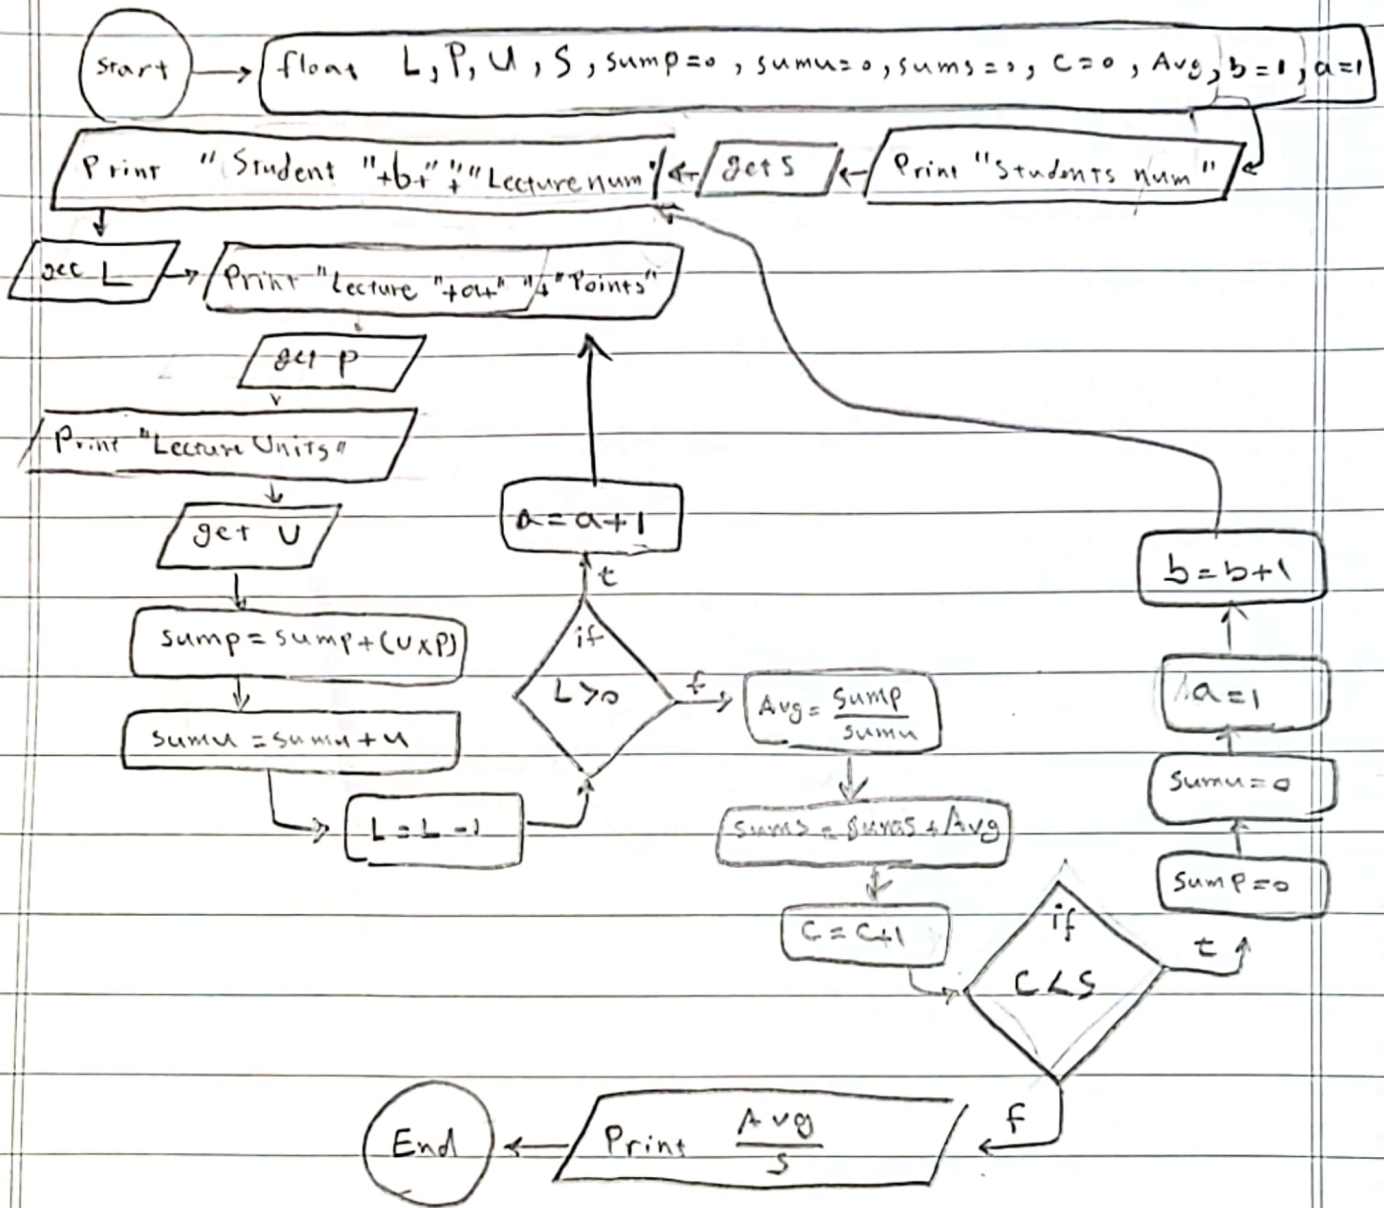 start
float L, P, U, S, sump=0, sumu=0, sums=0, c=0, Avg, b=1, a=1
Print "Students num"
get S
Print "Student "+b+" "+"Lecture num"
get L
Print "Lecture "+a+" "+"Points"
get P
Print "Lecture Units"
get U
sump = sump+(U×P)
sumu = sumu+u
L = L-1
if
L>0
t
a=a+1
f
Avg = sump/sumu
sums = sums + Avg
c = c+1
if
C<S
t
sump=0
sumu=0
a=1
b=b+1
f
Print Avg/S
End